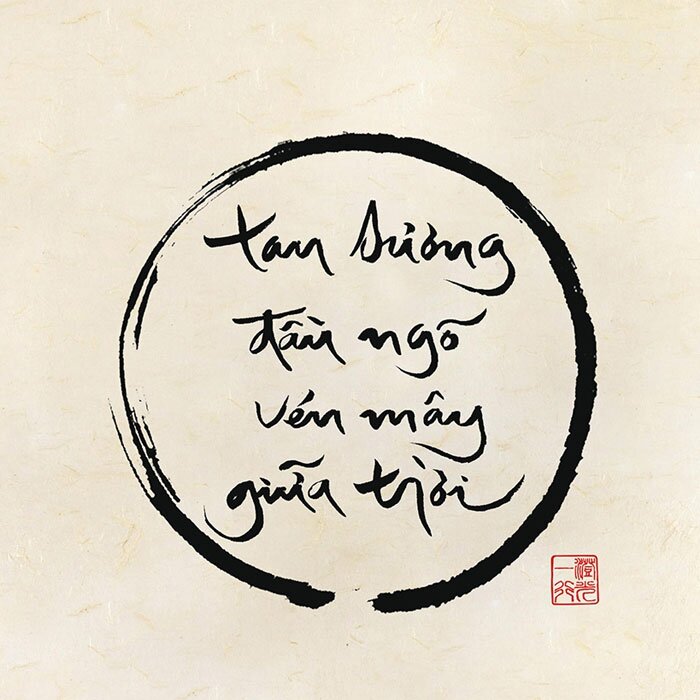 tan sương
đầu ngõ
vén mây
giữa trời
澄光
一行